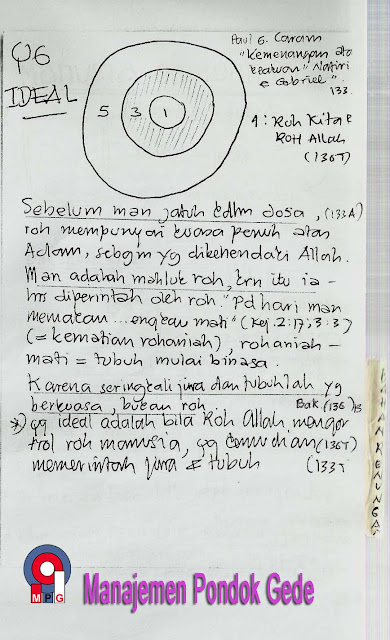 Q6
IDEAL
5 3 1
Paul G. Caram
"Kemenangan atas
" Nafiri
Gabriel".
133.
1: Roh Kita &
ROH Allah
(136T)
Sebelum man jatuh kdlm dosa, (133A)
roh mempunyai kuasa penuh atas
Adam, sebgm yg dikehendaki Allah.
Man adalah mahluk roh, krn itu ia
hrs diperintah oleh roh. "Pd hari man
memakan ... engkau mati" (Kej. 2:17; 3:3)
(= kematian rohaniah), rohaniah -
mati = tubuh mulai binasa.
Karena seringkali jiwa dan tubuhlah yg
berkuasa, bukan roh. Bak. (136)
*) yg ideal adalah bila Roh Allah mengon
trol roh manusia, yg kemudian (136T)
memerintah jiwa & tubuh (133T
MPG
Manajemen Pondok Gede